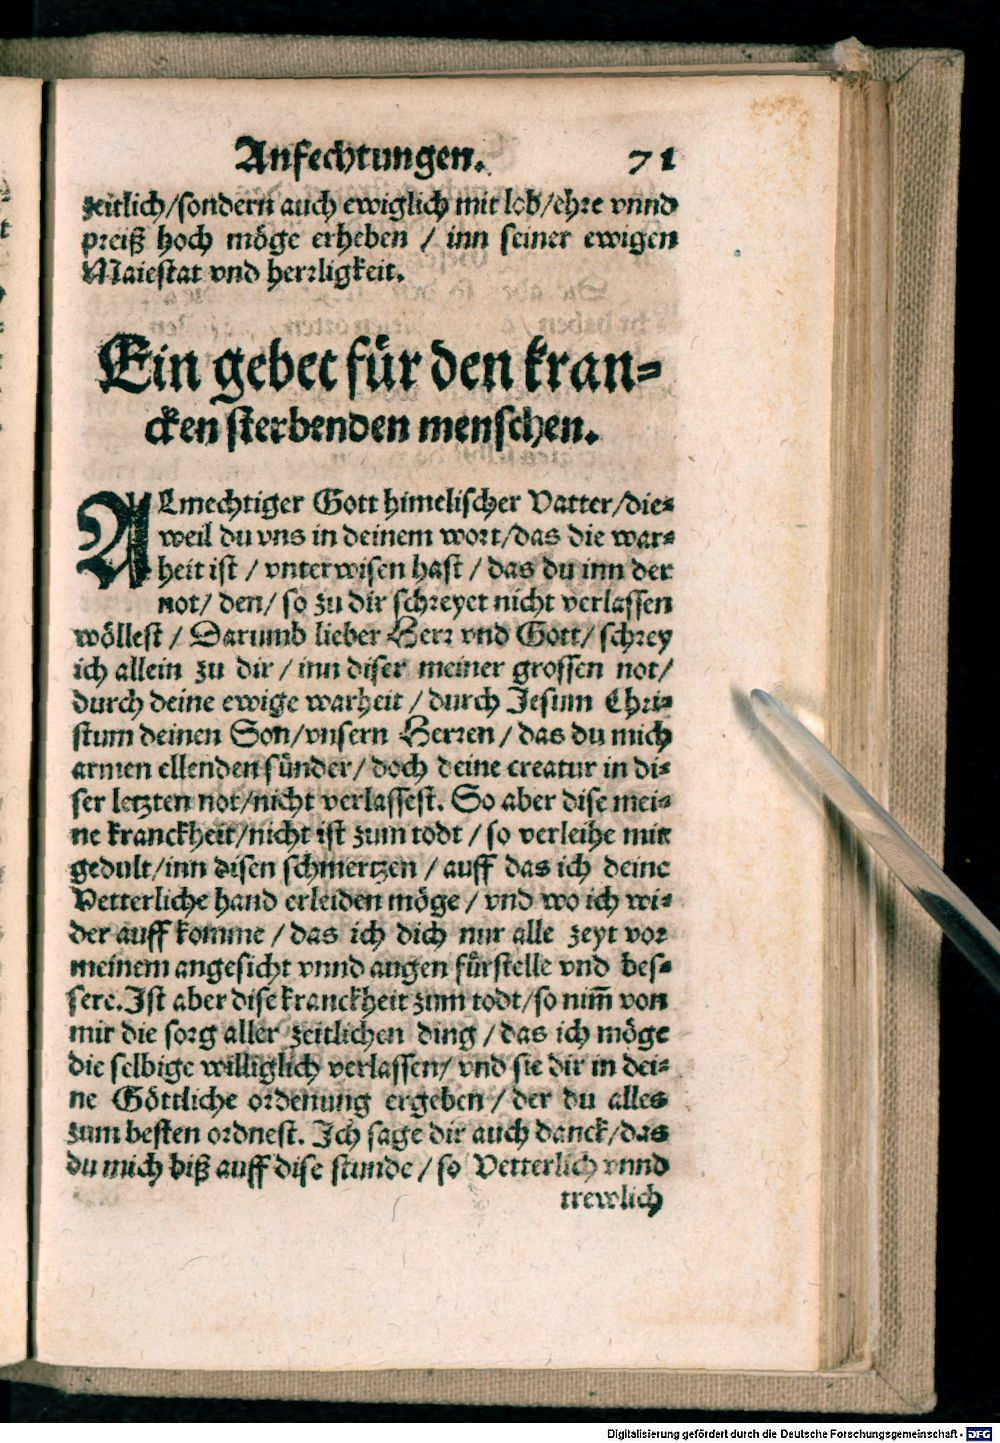 Anfechtungen. 71
zeitlich/sondern auch ewiglich mit lob/ehre vnnd
preiß hoch möge erheben / inn seiner ewigen
Maiestat vnd herrligkeit.
Ein gebet für den kran-
cken sterbenden menschen.
ALmechtiger Gott himelischer Vatter/die-
weil du vns in deinem wort/das die war-
heit ist / vnterwisen hast / das du inn der
not/ den/ so zu dir schreyet nicht verlassen
wöllest / Darumb lieber Herr vnd Gott/ schrey
ich allein zu dir / inn diser meiner grossen not/
durch deine ewige warheit / durch Jesum Chri-
stum deinen Son/vnsern Herren / das du mich
armen ellenden sünder/ doch deine creatur in di-
ser letzten not/nicht verlassest. So aber dise mei-
ne kranckheit/nicht ist zum todt / so verleihe mir
gedult/inn disen schmertzen / auff das ich deine
Vetterliche hand erleiden möge / vnd wo ich wi-
der auff komme / das ich dich nur alle zeyt vor
meinem angesicht vnnd augen fürstelle vnd bes-
sere. Ist aber dise kranckheit zum todt/so nim̄ von
mir die sorg aller zeitlichen ding / das ich möge
die selbige williglich verlassen/ vnd sie dir in dei-
ne Göttliche ordenung ergeben / der du alles
zum besten ordnest. Ich sage dir auch danck/das
du mich biß auff dise stunde / so Vetterlich vnnd
trewlich
Digitalisierung gefördert durch die Deutsche Forschungsgemeinschaft - DFG